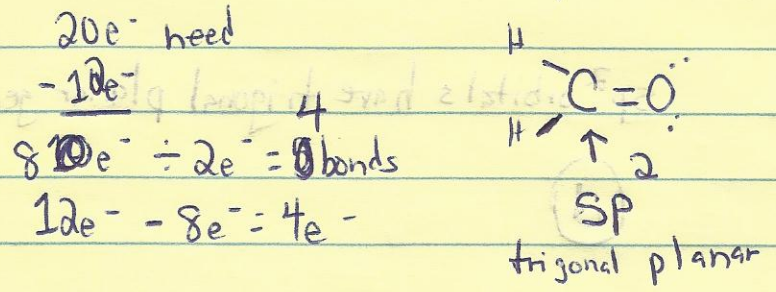 20e⁻ need
- 12e⁻
8e⁻ ÷ 2e⁻ = 4 bonds
12e⁻ - 8e⁻ = 4e⁻
H
C=O
H
↑
sp²
trigonal planar